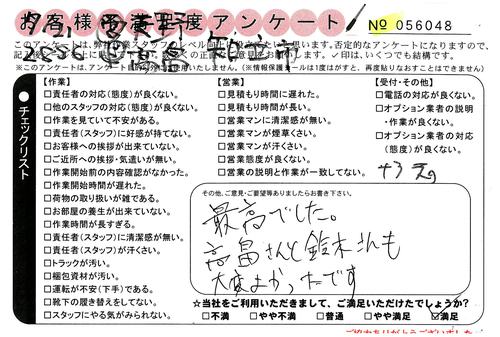 お客様満足度アンケート
№ 056048
このアンケートは、弊社
※このアンケートは、アンケート
(※情報保護シールは1度はがすと、再度貼りなおすことはできません)
チェックリスト
【作業】
□責任者の対応(態度)が良くない。
□他のスタッフの対応(態度)が良くない。
□作業を見ていて不安がある。
□責任者(スタッフ)に好感が持てない。
□お客様への挨拶が出来ていない。
□ご近所への挨拶・気遣いが無い。
□作業開始前の内容確認がなかった。
□作業開始時間が遅れた。
□荷物の取り扱いが雑である。
□お部屋の養生が出来ていない。
□作業時間が長すぎる。
□責任者(スタッフ)に清潔感が無い。
□責任者(スタッフ)が汗くさい。
□トラックが汚い。
□梱包資材が汚い。
□運転が不安(下手)である。
□靴下の履き替えをしてない。
□スタッフにやる気がみられない。
【営業】
□見積もり時間に遅れた。
□見積もり時間が長い。
□営業マンに清潔感が無い。
□営業マンが煙草くさい。
□営業マンが汗くさい。
□営業態度が良くない。
□営業の説明と作業が一致してない。
【受付・その他】
□電話の対応が良くない。
□オプション業者の説明
・作業が良くない。
□オプション業者の対応
(態度)が良くない。
その他、ご意見・ご要望等ありましたらお書き下さい。
最高でした。
高畠さんと鈴木さんも
大変よかったです
☆当社をご利用いただきまして、ご満足いただけたでしょうか?
□不満 □やや不満 □普通 □やや満足 ☑満足
ご協力ありがとうございました